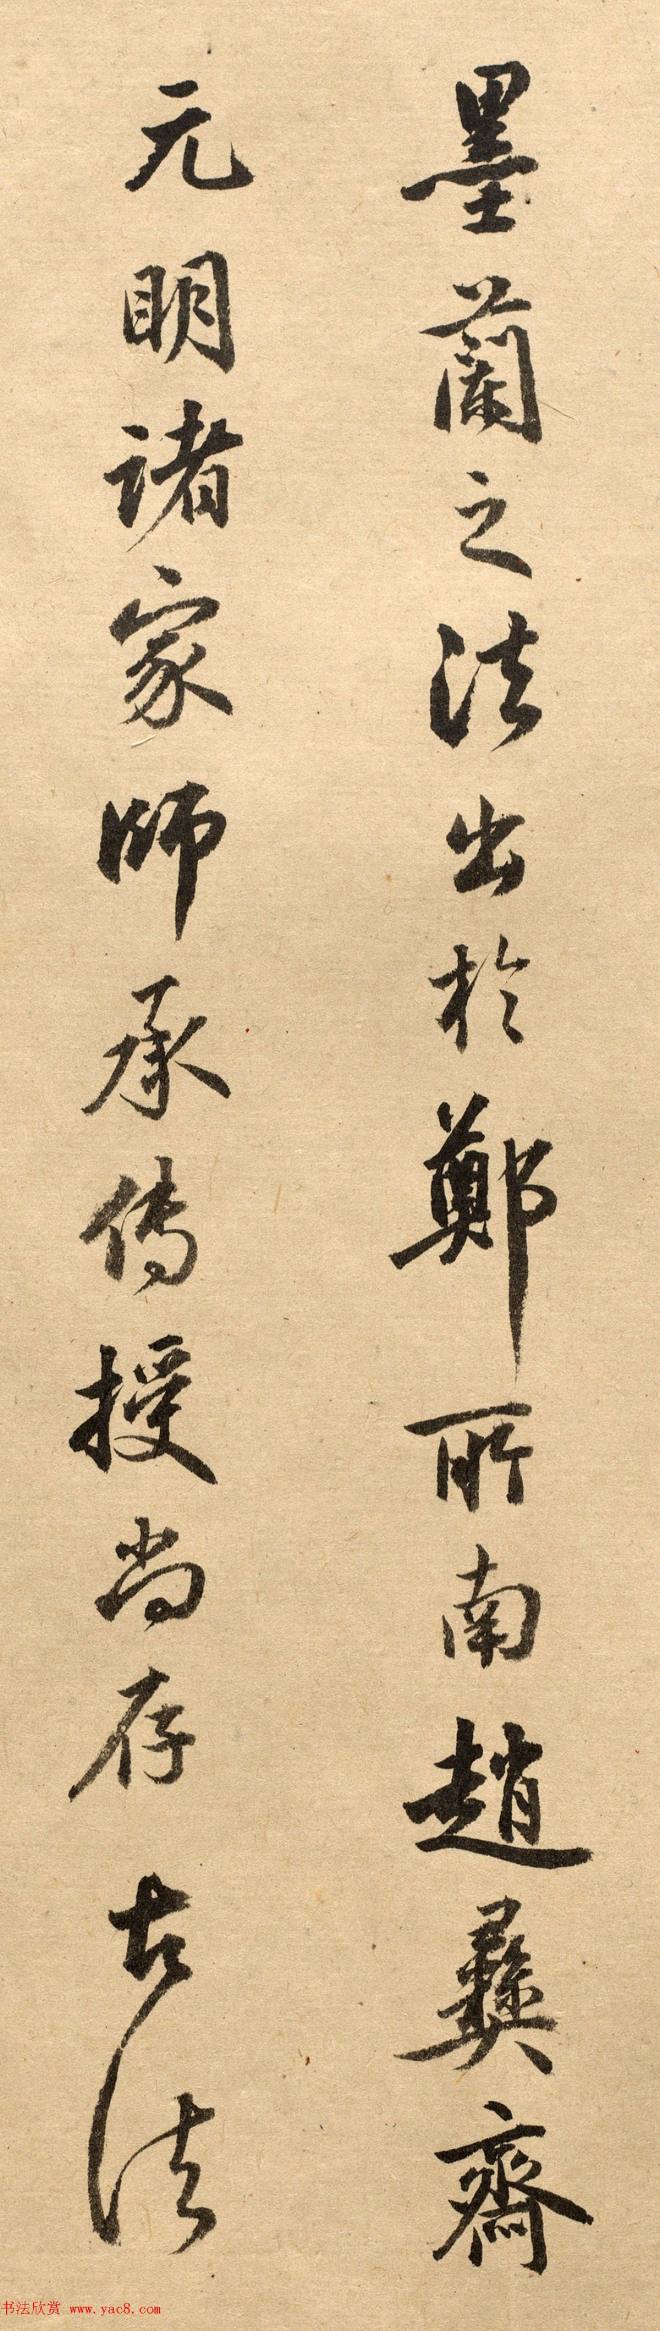 墨蘭之法出於鄭所南趙彝齋
元明諸家師承傳授尚存古法
书法欣赏 www.yac8.com